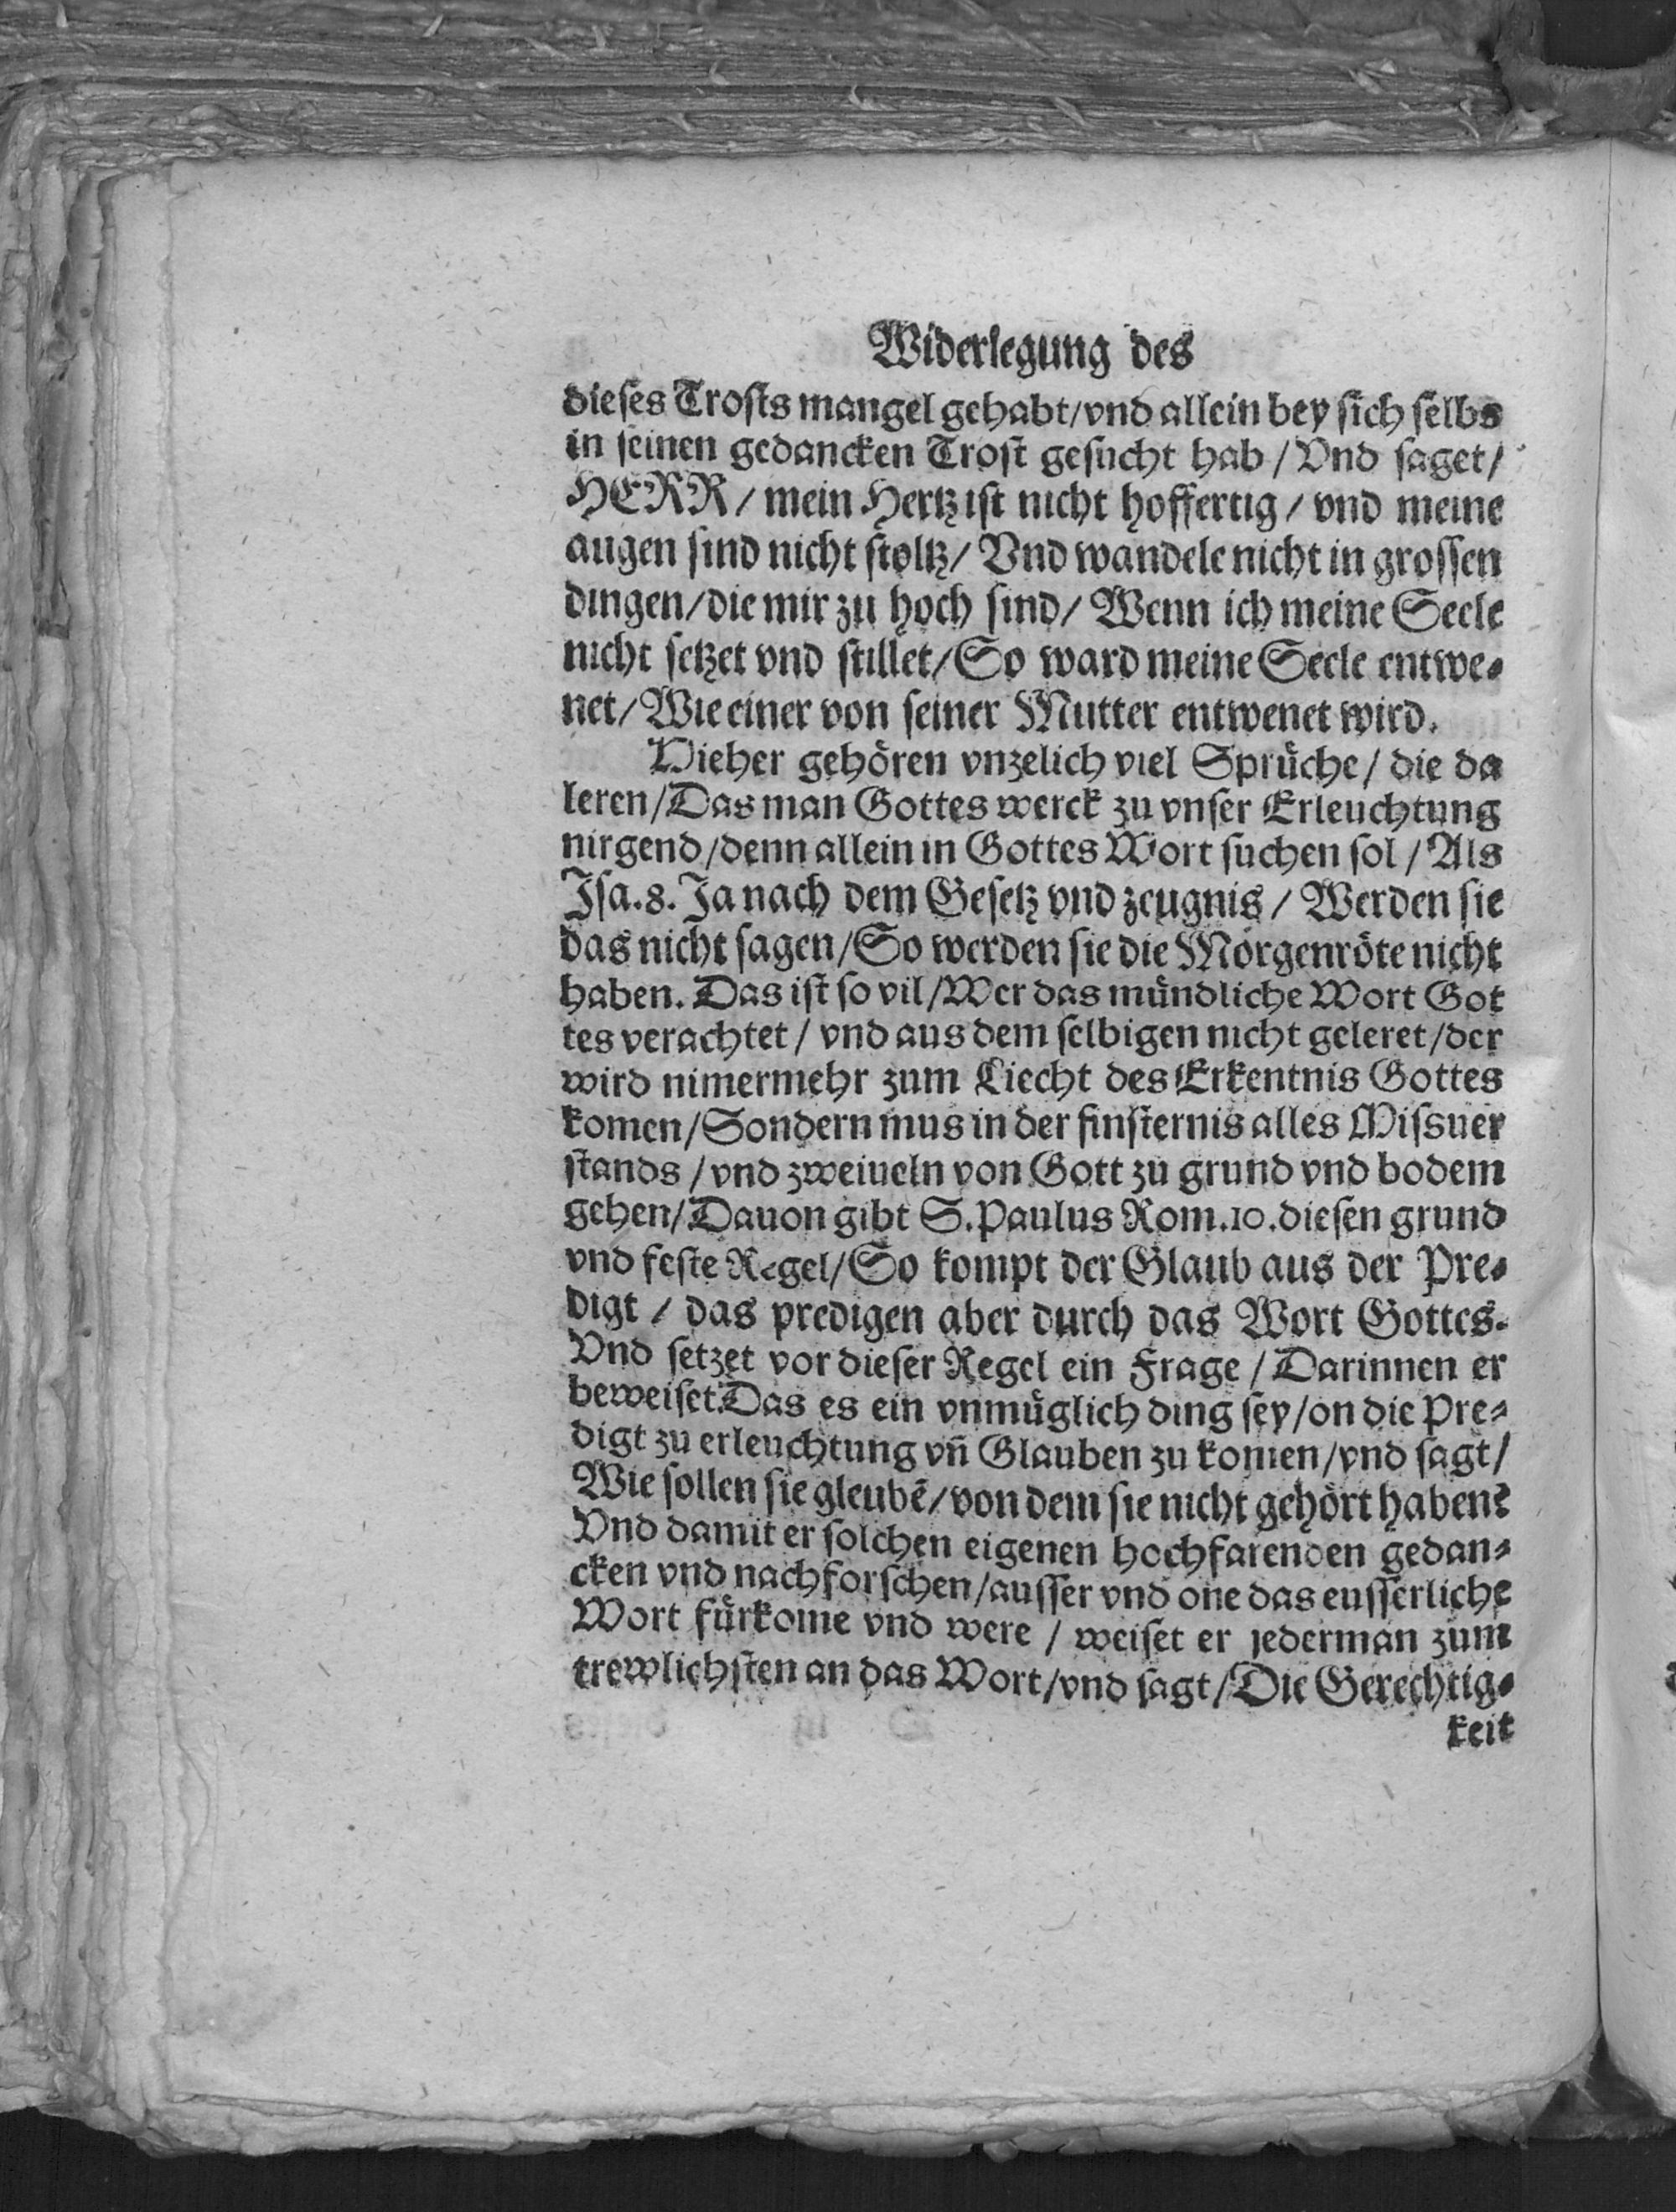 Widerlegung des
dieſes Troſts mangel gehabt/vnd allein bey ſich ſelbs
in ſeinen gedancken Troſt geſucht hab / Vnd ſaget/
HERR/ mein Hertz iſt nicht hoffertig/ vnd meine
augen ſind nicht ſtoltz/ Vnd wandele nicht in groſſen
dingen/die mir zu hoch ſind/ Wenn ich meine Seele
nicht ſetzet vnd ſtillet/So ward meine Seele entwe-
net/ Wie einer von ſeiner Mutter entwenet wird.
Hieher gehören vnzelich viel Sprüche/ die da
leren/Das man Gottes werck zu vnſer Erleuchtung
nirgend/denn allein in Gottes Wort ſuchen ſol / Als
Jſa.8. Ja nach dem Geſetz vnd zeugnis/ Werden ſie
das nicht ſagen/So werden ſie die Morgenröte nicht
haben. Das iſt ſo vil/Wer das mündliche Wort Got
tes verachtet/ vnd aus dem ſelbigen nicht geleret/der
wird nimermehr zum Liecht des Erkentnis Gottes
komen/Sondern mus in der finſternis alles Miſsuer
ſtands /vnd zweiueln von Gott zu grund vnd bodem
gehen/Dauon gibt S.Paulus Rom.10.dieſen grund
vnd feſte Regel/So kompt der Glaub aus der Pre-
digt / das predigen aber durch das Wort Gottes.
Vnd ſetzet vor dieſer Regel ein Frage / Darinnen er
beweiſet.Das es ein vnmüglich ding ſey/on die Pre-
digt zu erleuchtung vñ Glauben zu komen/vnd ſagt/
Wie ſollen ſie gleubē/von dem ſie nicht gehört haben?
Vnd damit er ſolchen eigenen hochfarenden gedan-
cken vnd nachforſchen/auſſer vnd one das euſſerliche
Wort fürkome vnd were / weiſet er jederman zum
trewlichſten an das Wort/vnd ſagt/Die Gerechtig-
keit